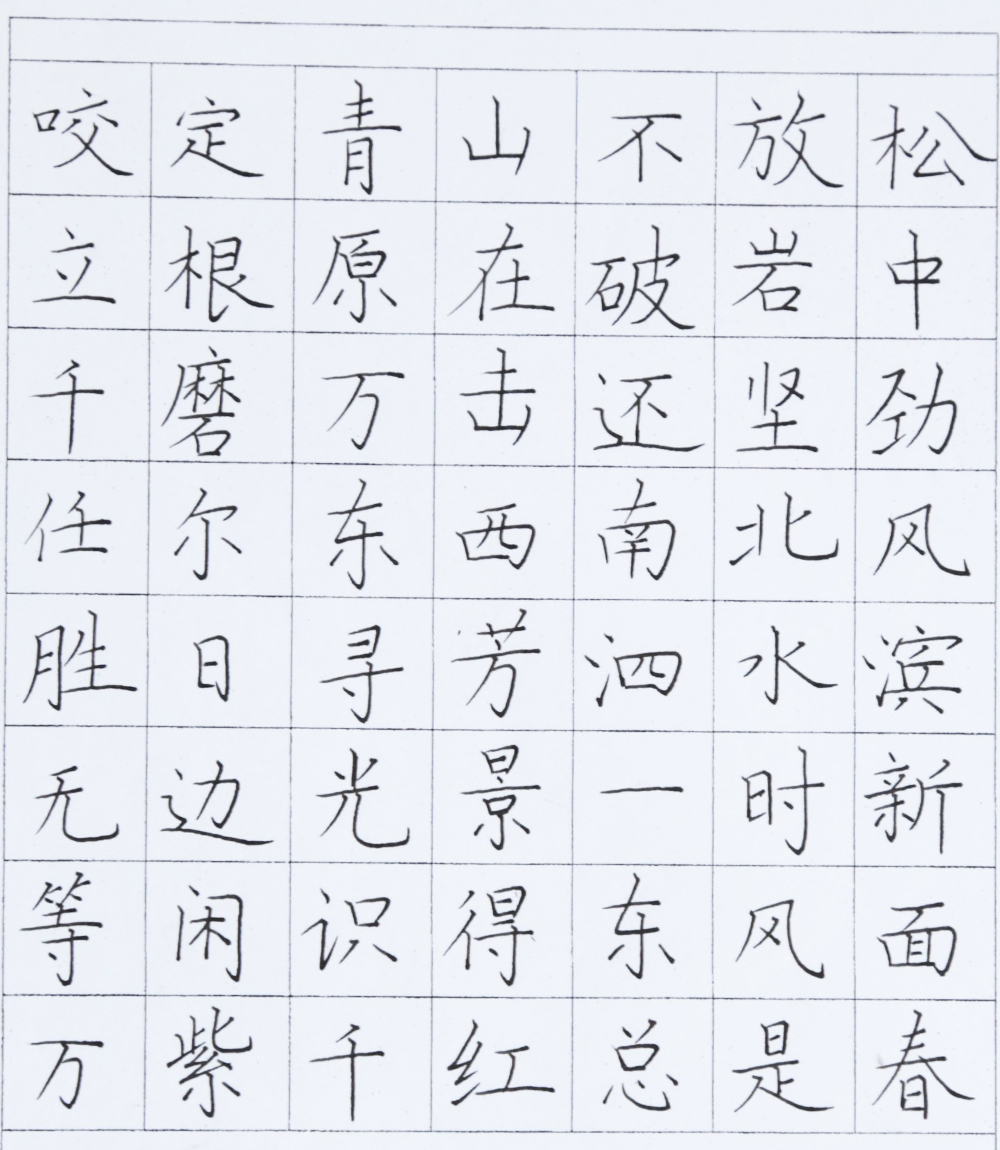 咬定青山不放松
立根原在破岩中
千磨万击还坚劲
任尔东西南北风
胜日寻芳泗水滨
无边光景一时新
等闲识得东风面
万紫千红总是春